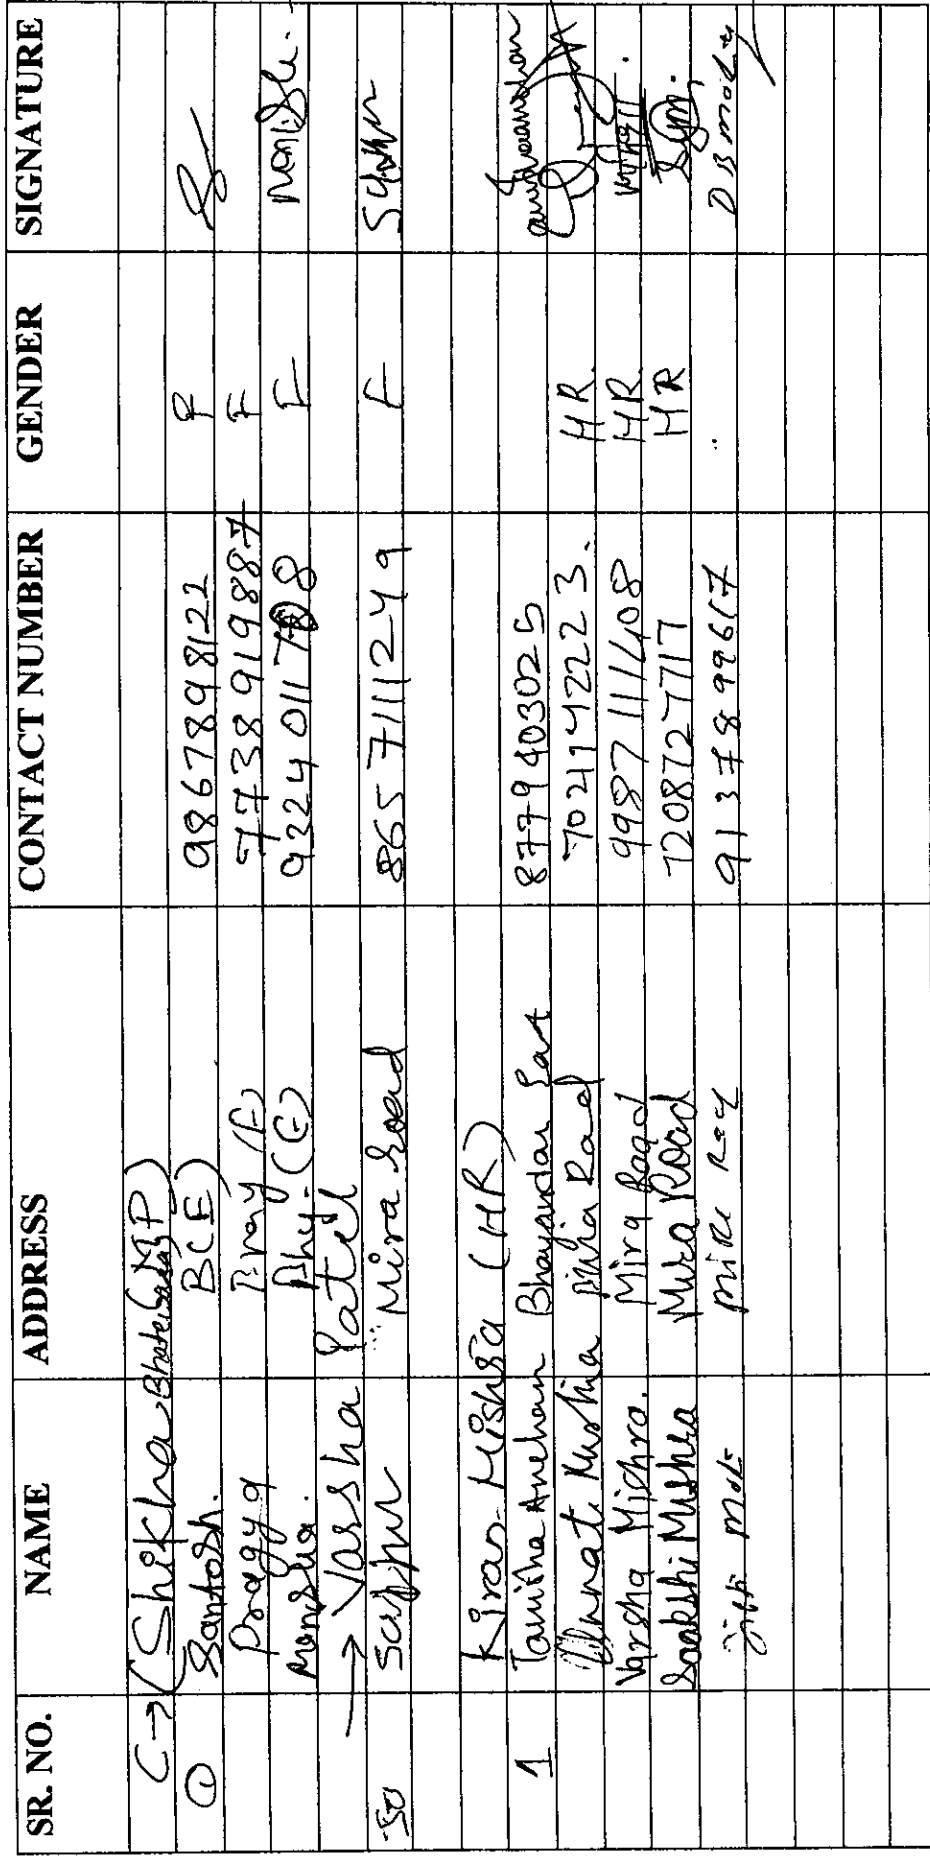 SR. NO. NAME ADDRESS CONTACT NUMBER GENDER SIGNATURE
C→ (Shikha Bhate MP)
① Santosh. B(E) 9867898122 F
Pragya Bhay (E) 7738919887 F
Manisha. Bhy. (E) 9324011788 F Manisha.
→ Varsha Patel
50 Mira road 8657111249 F
Kiran Mishra (HR)
1 Tanisha Anchan Bhayandar East 8779403025
Unnati Mishra Mira Road 7021742223. HR.
Varsha Mishra. Mira Road 9987111408 HR.
Saakshi Mishra Mira Road 7208727717 HR
9137899617